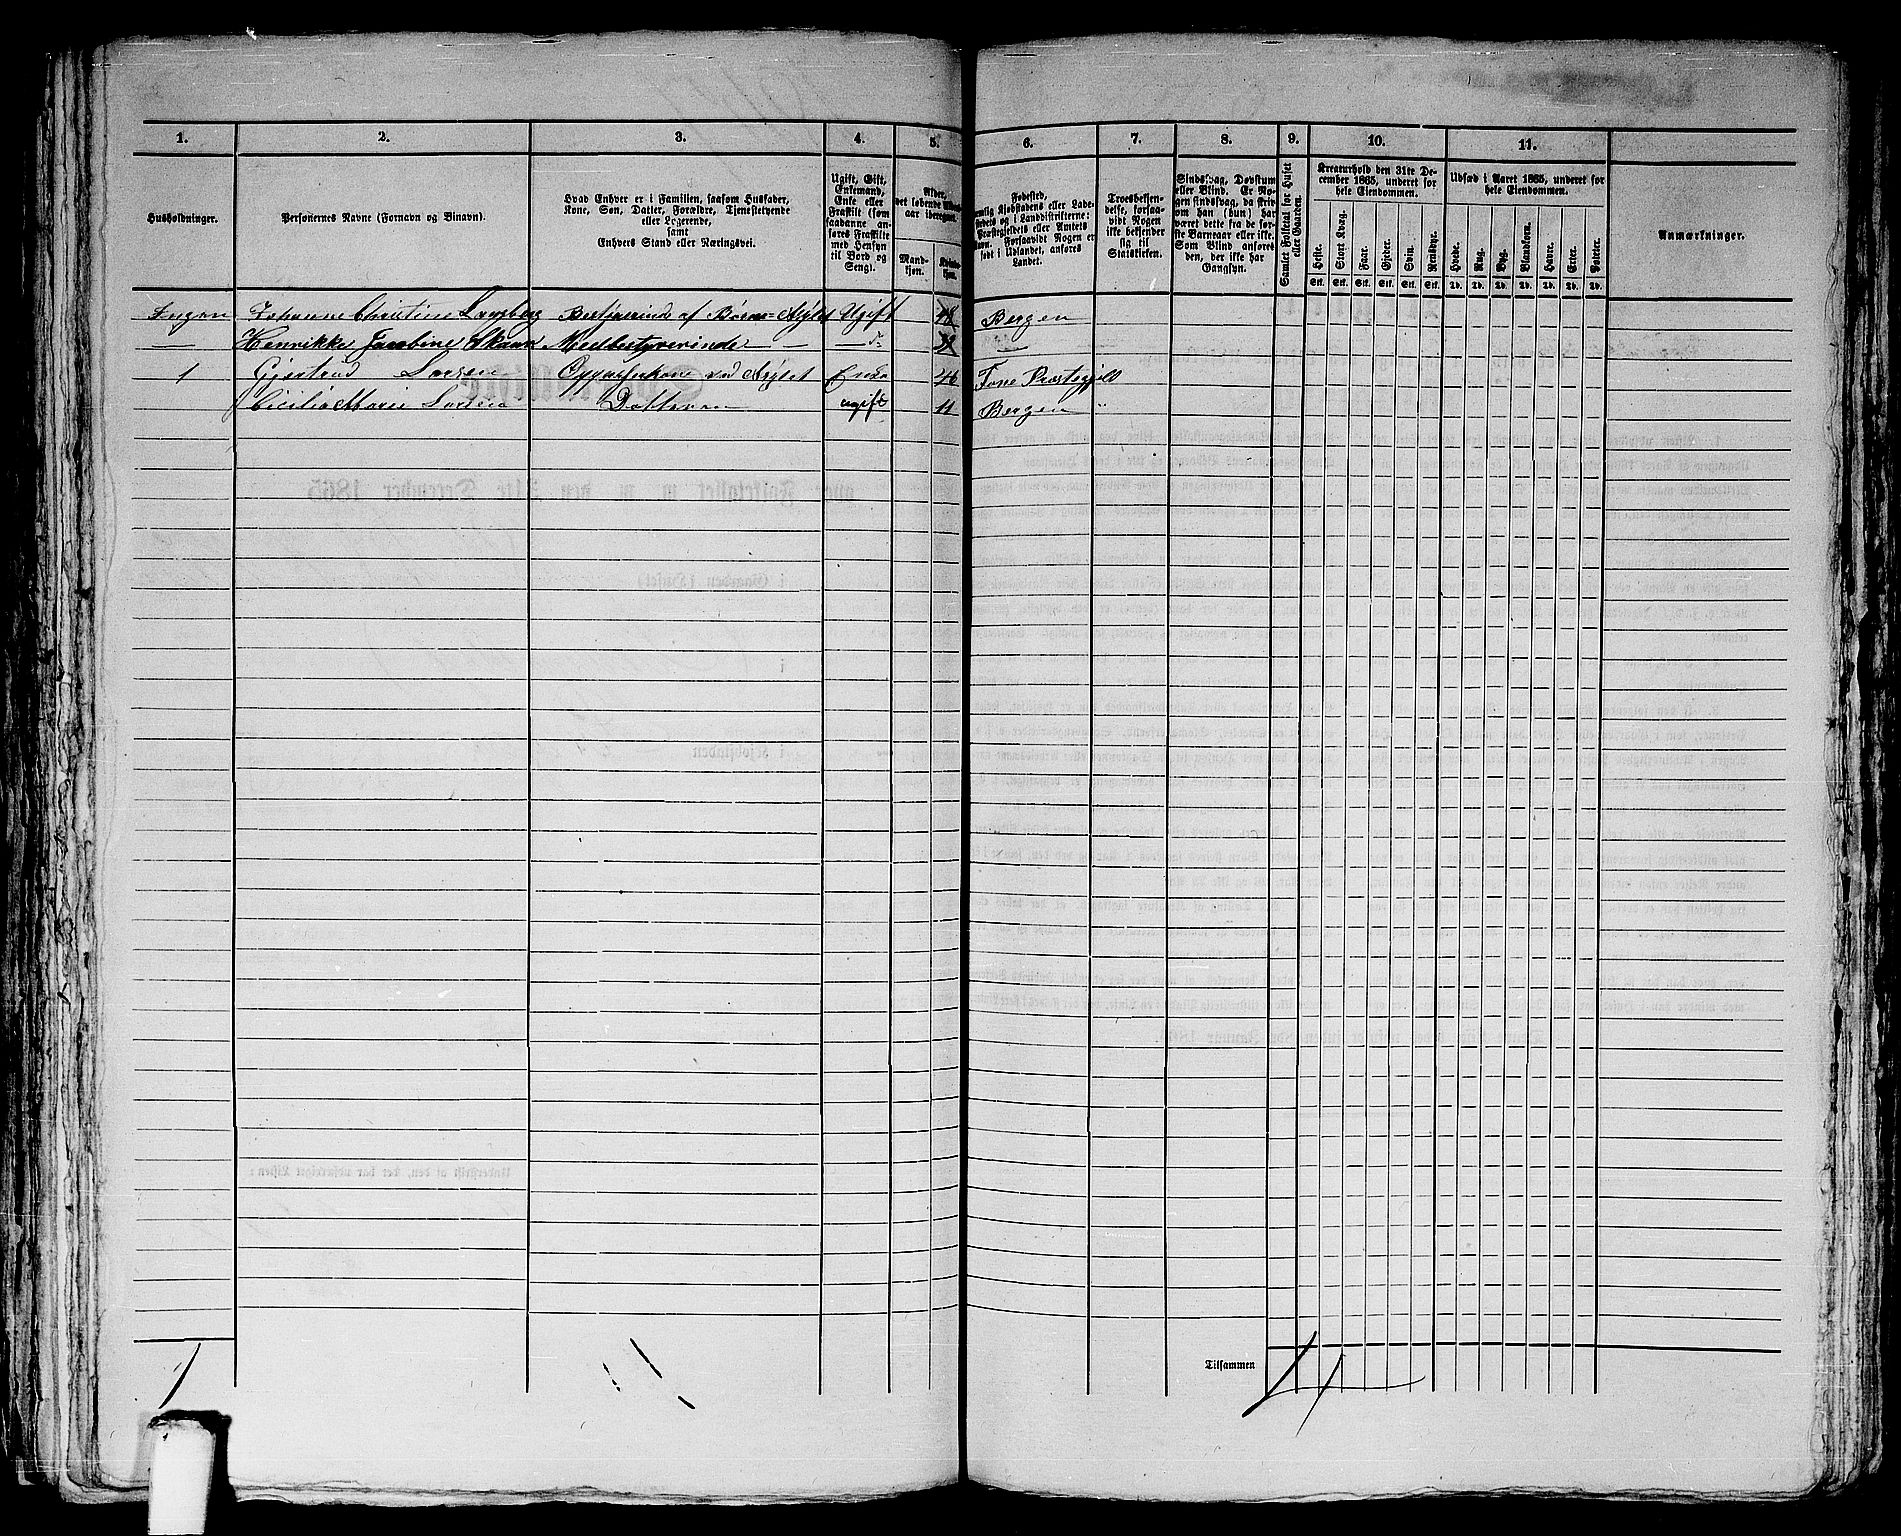 1. 2. 3. 4. 5. 6. 7. 8. 9. 10. 11.
Husholdninger.
Personernes Navne (Fornavn og Binavn).
Hvad Enhver er i Familien, saasom Husfader,
Kone, Søn, Datter, Forældre, Tjenestetyende
eller Logerende,
samt
Enhvers Stand eller Næringsvei.
Ugift, Gift,
Enkemand,
Enke eller
Fraskilt (som
saadanne an-
føres Fraskilte
med Hensyn
til Bord og
Seng).
Alder,
det løbende
aar iberegnet.
Mand-
kjøn.
Kvinde-
kjøn.
Fødested,
nemlig Kjøbstadens eller Lade-
stedets og i Landdistrikterne:
Præstegjeldets eller Amtets
Navn. Forsaavidt Nogen er
født i Udlandet, anføres
Landet.
Troesbekjen-
delse, forsaa-
vidt Nogen
ikke bekjender
sig til
Statskirken.
Sindssvag, Døvstum
eller Blind. Er No-
gen sindssvag, da skriv
om han (hun) har
været dette fra de før-
ste Barneaar eller ikke.
Som Blind anføres
den, der ikke har
Gangsyn.
Samlet Folketal for Huset
eller Gaarden.
Kreaturhold den 31te De-
cember 1865, underet for
hele Eiendommen.
Heste. Stort Kvæg. Faar. Gjeder. Svin. Rensdyr.
Stk. Stk. Stk. Stk. Stk. Stk.
Udsæd i Aaret 1865, underet for
hele Eiendommen.
Hvede. Rug. Byg. Blandkorn. Havre. Erter. Poteter.
Td. Td. Td. Td. Td. Td. Td.
Anmærkninger.
Ingen Johanne Christine Bestyrerinde af Børne-Asylet Ugift 48 Bergen
— Henrikke Jacobine Skaar Medbestyrerinde — — do 38
1 Gjertrud Larsen Oppasserkone ved Asylet Enke 46 Fane Præstegjeld
Cicilia Marie Larsen Datter ugift 11 Bergen "
1
Tilsammen
4